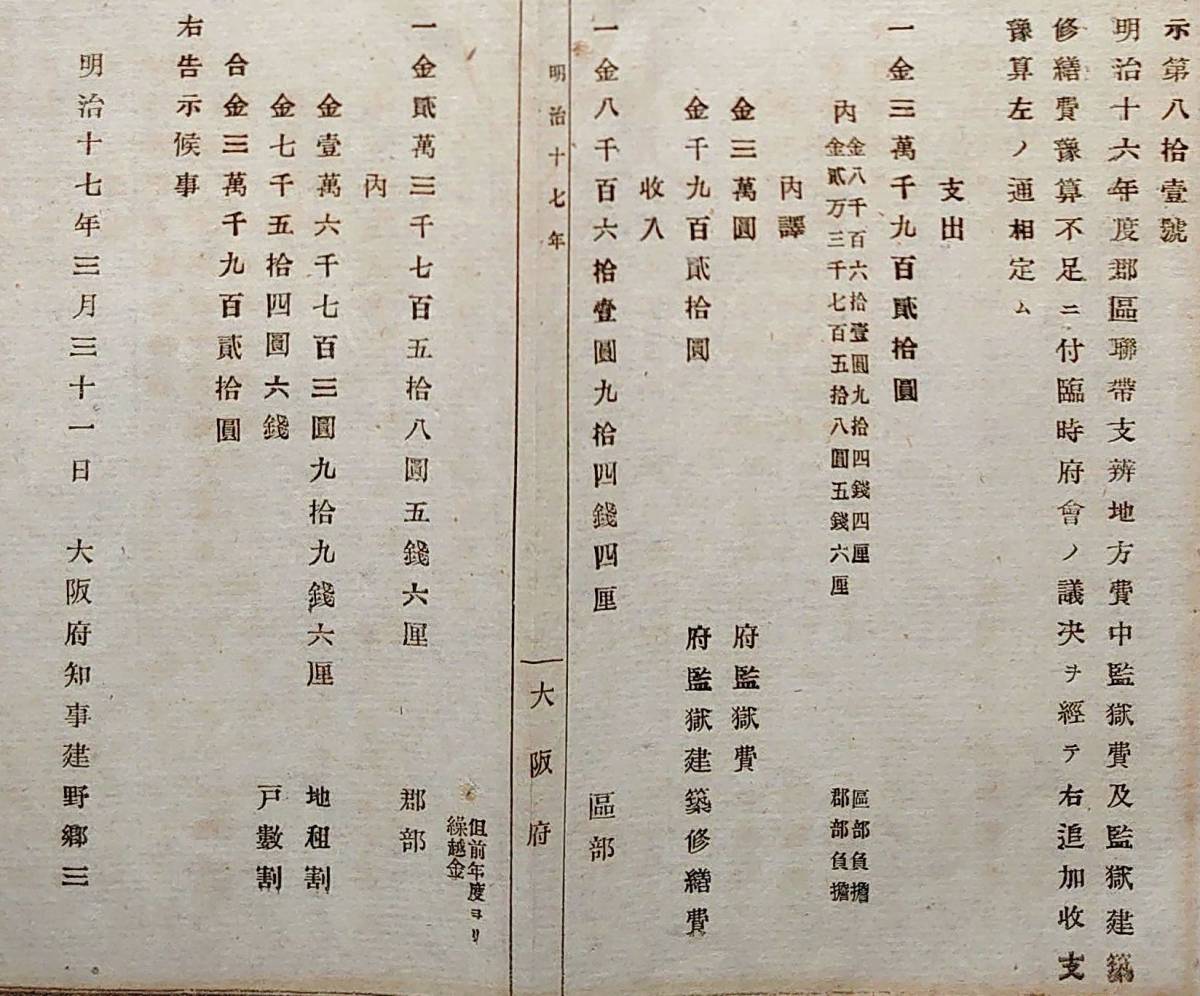 示第八拾壹號
明治十六年度郡區聯帶支辨地方費中監獄費及監獄建築
修繕費豫算不足ニ付臨時府會ノ議決ヲ經テ右追加收支
豫算左ノ通相定ム
支出
一金三萬千九百貳拾圓
內
金八千百六拾壹圓九拾四錢四厘 區部負擔
金貳万三千七百五拾八圓五錢六厘 郡部負擔
內譯
金三萬圓 府監獄費
金千九百貳拾圓 府監獄建築修繕費
收入
一金八千百六拾壹圓九拾四錢四厘 區部
明治十七年 大阪府
但前年度ヨリ
繰越金
一金貳萬三千七百五拾八圓五錢六厘 郡部
內
金壹萬六千七百三圓九拾九錢六厘 地租割
金七千五拾四圓六錢 戶數割
合金三萬千九百貳拾圓
右告示候事
明治十七年三月三十一日 大阪府知事建野鄉三